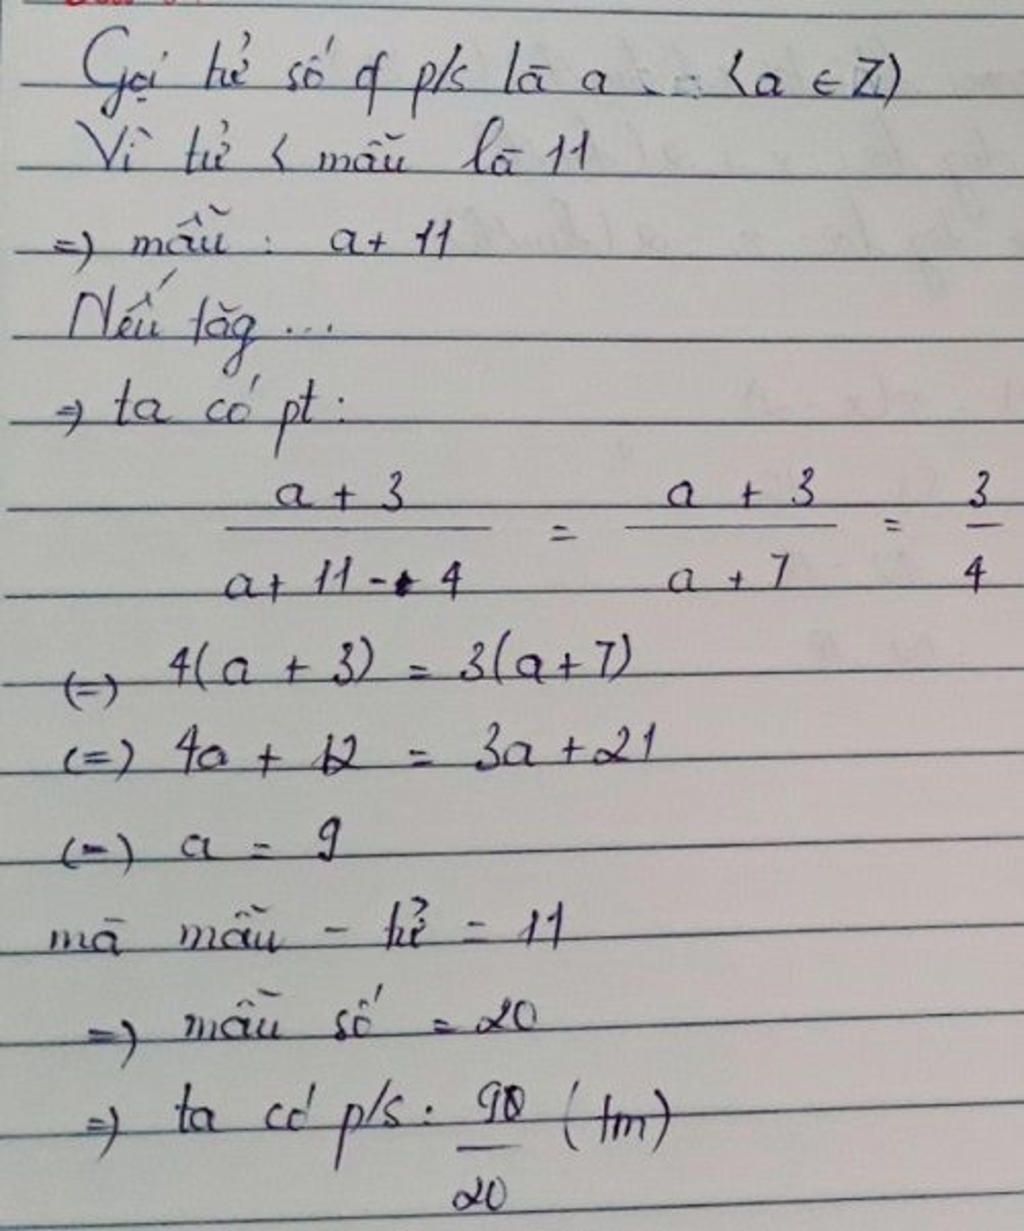 Gọi tử số of p/s là a (a ∈ Z)
Vì tử < mẫu là 11
=) mẫu : a + 11
Nếu tăg ...
=) ta có pt :
a + 3 / a + 11 - 4 = a + 3 / a + 7 = 3 / 4
(=) 4(a + 3) = 3(a + 7)
(=) 4a + 12 = 3a + 21
(=) a = 9
mà mẫu - tử = 11
=) mẫu số = 20
=) ta có p/s : 9 / 20 (tm)